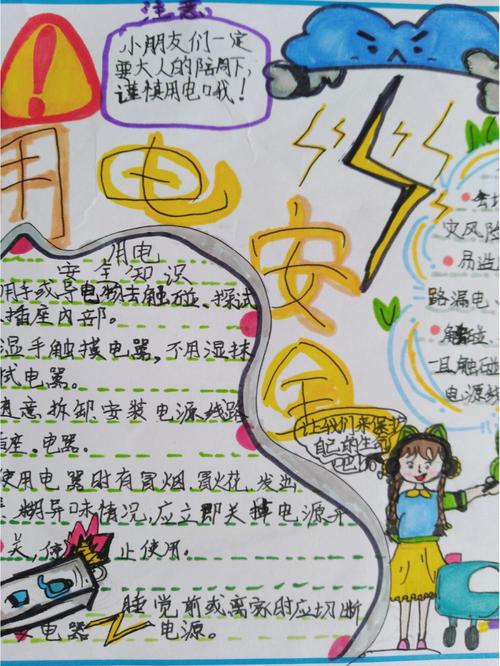 注意
小朋友们一定
要大人的陪同下,
谨慎用电哦!
用电
安全
用电
安全知识
用手或导电物去触碰、探试
插座内部。
湿手触摸电器,不用湿抹
拭电器。
随意拆卸安装电源线路
插座、电器。
使用电器时有冒烟 冒火花、发出
糊异味情况,应立即关掉电源开
关,停止使用。
睡觉前或离家时应切断
电器 电源。
灾风险
易造
路漏电
触碰
且触碰
电源线
让我们来保护
自己的生命
吧!